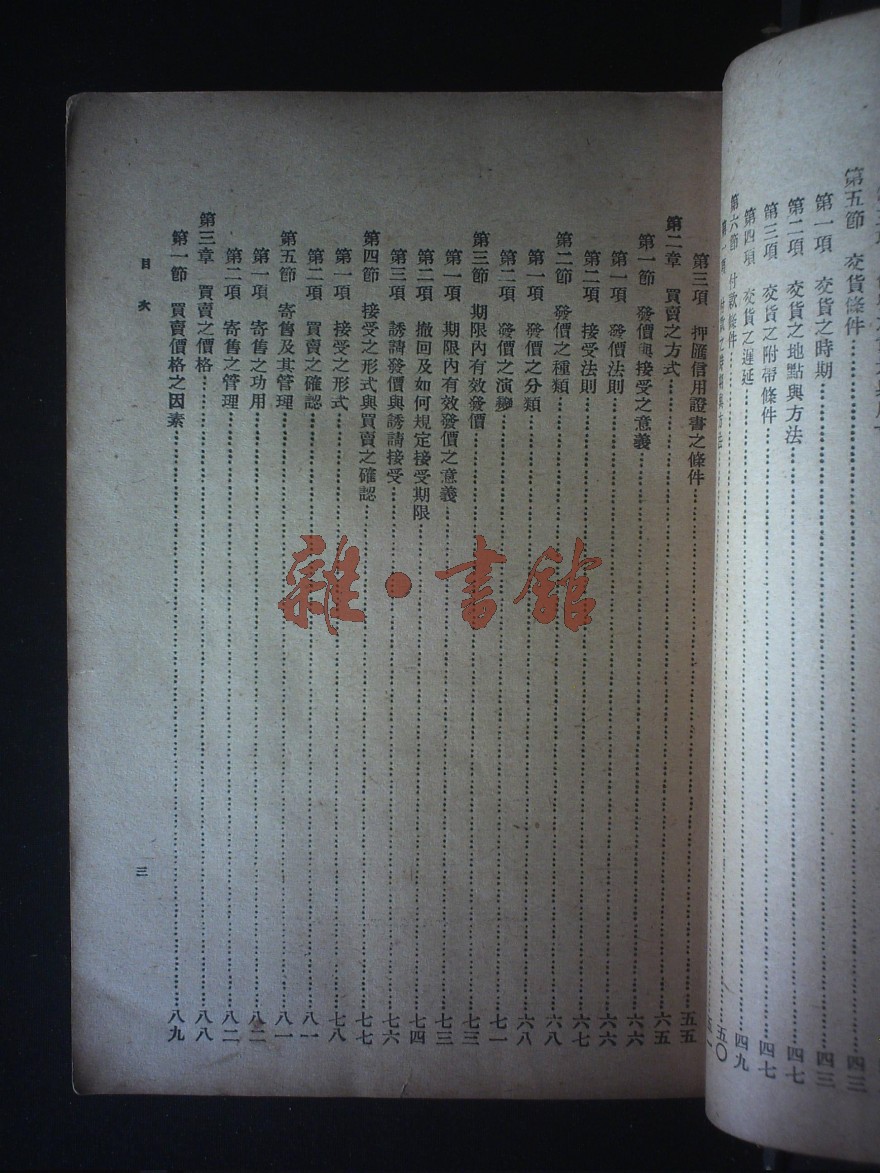 第五節 交貨條件 四三
第一項 交貨之時期 四三
第二項 交貨之地點與方法 四七
第三項 交貨之附帶條件 四七
第四項 交貨之遲延 四九
第六節 付款條件 五〇
第三項 押匯信用證書之條件 五五
第二章 買賣之方式 六五
第一節 發價與接受之意義 六六
第一項 發價法則 六六
第二項 接受法則 六七
第二節 發價之種類 六八
第一項 發價之分類 六八
第二項 發價之演變 七一
第三節 期限內有效發價 七三
第一項 期限內有效發價之意義 七三
第二項 撤回及如何規定接受期限 七四
第三項 誘請發價與誘請接受 七六
第四節 接受之形式與買賣之確認 七七
第一項 接受之形式 七八
第二項 買賣之確認 八一
第五節 寄售及其管理 八一
第一項 寄售之功用 八二
第二項 寄售之管理 八二
第三章 買賣之價格 八八
第一節 買賣價格之因素 八九
目次
三
雜·書館